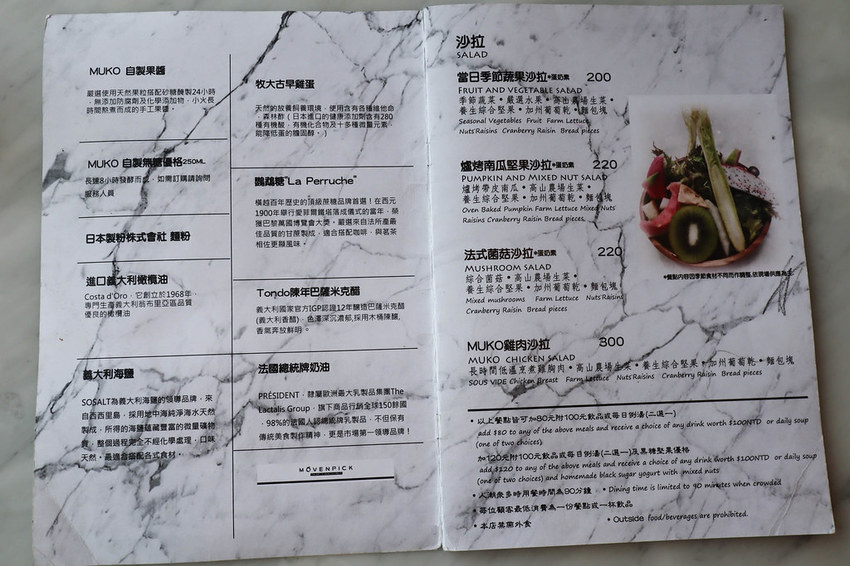 MUKO 自製果醬
嚴選使用天然果粒搭配砂糖醃製24小時
，無添加防腐劑及化學添加物，小火長
時間熬煮而成的手工果醬。
MUKO 自製無糖優格250ML
長達8小時發酵而成，如需訂購請詢問
服務人員
日本製粉株式會社 麵粉
進口義大利橄欖油
Costa d'Oro，它創立於1968年，
專門生產義大利翁布里亞區品質
優良的橄欖油
義大利海鹽
SOSALT為義大利海鹽的領導品牌，來
自西西里島，採用地中海純淨海水天然
製成，所得的海鹽蘊藏豐富的微量礦物
質，整個過程完全不經化學處理，口味
天然。最適合搭配各式食材。
牧大古早雞蛋
天然的放養飼養環境，使用含有各種維他命
，森林醇（日本進口的健康添加劑含有280
種有機酸，有機化合物及十多種微量元素，
能降低蛋的膽固醇。）
鸚鵡糖"La Perruche"
橫越百年歷史的頂級蔗糖品牌首選！在西元
1900年舉行愛菲爾鐵塔落成儀式的當年，榮
獲巴黎萬國博覽會大獎。嚴選來自法所產最
佳品質的甘蔗製成，適合搭配咖啡，與茗茶
相佐更顯風味。
Tondo陳年巴薩米克醋
義大利國家官方IGP認證12年釀造巴薩米克醋
(義大利香醋)，色澤深沉濃郁,採用木桶陳釀,
香氣奔放鮮明。
法國總統牌奶油
PRÉSIDENT，隸屬歐洲最大乳製品集團The
Lactalis Group，旗下商品行銷全球150餘國
，98%的法國人認識總統乳製品，不但保有
傳統美食製作精神，更是市場第一領導品牌！
MÖVENPICK
沙拉
SALAD
當日季節蔬果沙拉*蛋奶素 200
FRUIT AND VEGETABLE SALAD
季節蔬菜•嚴選水果•高山農場生菜•
養生綜合堅果•加州葡萄乾•麵包塊
Seasonal Vegetables Fruit Farm Lettuce
Nuts Raisins Cranberry Raisin Bread pieces
爐烤南瓜堅果沙拉*蛋奶素 220
PUMPKIN AND MIXED NUT SALAD
爐烤帶皮南瓜•高山農場生菜•
養生綜合堅果•加州葡萄乾•麵包塊
Oven Baked Pumpkin Farm Lettuce Mixed Nuts
Raisins Cranberry Raisin Bread pieces
法式菌菇沙拉*蛋奶素 220
MUSHROOM SALAD
綜合菌菇•高山農場生菜•
養生綜合堅果•加州葡萄乾•麵包塊
Mixed mushrooms Farm Lettuce Nuts Raisins
Cranberry Raisin Bread pieces
*餐點內容因季節食材不同而作調整,依現場供應為主
MUKO雞肉沙拉 300
MUKO CHICKEN SALAD
長時間低溫烹煮雞胸肉•高山農場生菜•養生綜合堅果•加州葡萄乾•麵包塊
SOUS VIDE Chicken Breast Farm Lettuce Nuts Raisins Cranberry Raisin Bread pieces
•以上餐點皆可加80元附100元飲品或每日例湯(二選一)
add $80 to any of the above meals and receive a choice of any drink worth $100NTD or daily soup
(one of two choices)
加120元附100元飲品或每日例湯(二選一)及黑糖堅果優格
add $120 to any of the above meals and receive a choice of any drink worth $100NTD or daily soup
(one of two choices) and homemade black sugar yogurt with mixed nuts
•人潮眾多時用餐時間為90分鐘 •Dining time is limited to 90 minutes when crowded
•每位顧客最低消費為一份餐點或一杯飲品
•本店禁帶外食 •Outside food/beverages are prohibited.